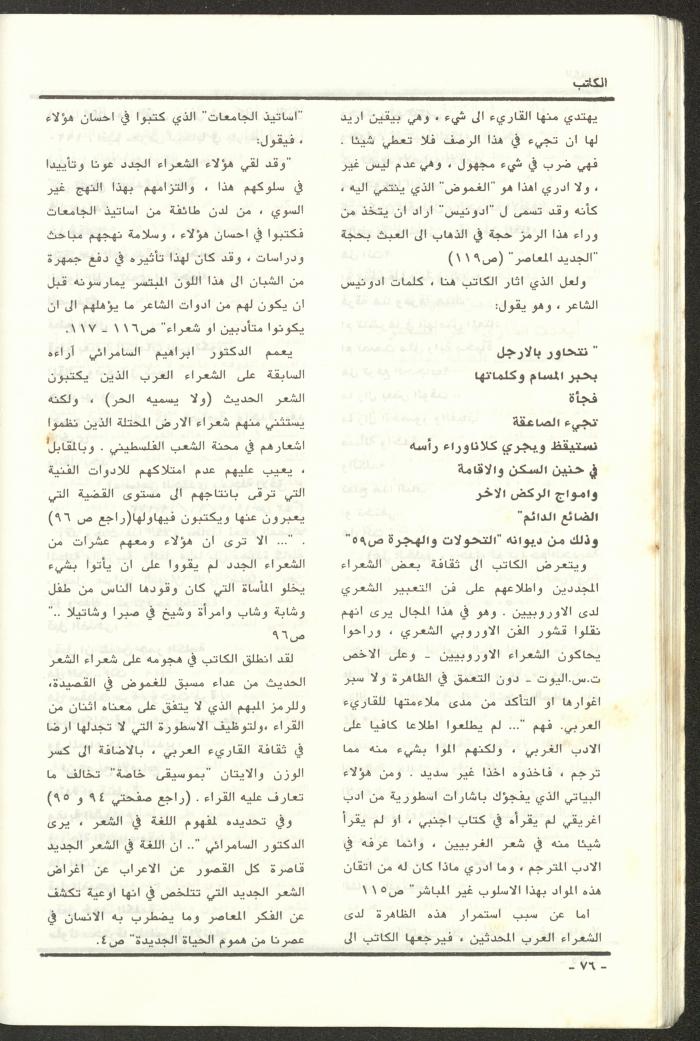 الكاتب
يهتدي منها القاريء الى شيء ، وهي بيقين اريد
لها ان تجيء في هذا الرصف فلا تعطي شيئا .
فهي ضرب في شيء مجهول ، وهي عدم ليس غير
، ولا ادري اهذا هو "الغموض" الذي ينتمي اليه ،
كأنه وقد تسمى ل "ادونيس" اراد ان يتخذ من
وراء هذا الرمز حجة في الذهاب الى العبث بحجة
"الجديد المعاصر" (ص١١٩)
ولعل الذي اثار الكاتب هنا ، كلمات ادونيس
الشاعر ، وهو يقول:
" نتحاور بالارجل
بحبر المسام وكلماتها
فجأة
تجيء الصاعقة
نستيقظ ويجري كلاناوراء رأسه
في حنين السكن والاقامة
وامواج الركض الاخر
الضائع الدائم"
وذلك من ديوانه "التحولات والهجرة ص٥٩"
ويتعرض الكاتب الى ثقافة بعض الشعراء
المجددين واطلاعهم على فن التعبير الشعري
لدى الاوروبيين . وهو في هذا المجال يرى انهم
نقلوا قشور الفن الاوروبي الشعري ، وراحوا
يحاكون الشعراء الاوروبيين - وعلى الاخص
ت.س.اليوت - دون التعمق في الظاهرة ولا سبر
اغوارها او التأكد من مدى ملاءمتها للقاريء
العربي. فهم "... لم يطلعوا اطلاعا كافيا على
الادب الغربي ، ولكنهم الموا بشيء منه مما
ترجم ، فاخذوه اخذا غير سديد . ومن هؤلاء
البياتي الذي يفجؤك باشارات اسطورية من ادب
اغريقي لم يقرأه في كتاب اجنبي ، او لم يقرأ
شيئا منه في شعر الغربيين ، وانما عرفه في
الادب المترجم ، وما ادري ماذا كان له من اتقان
هذه المواد بهذا الاسلوب غير المباشر" ص١١٥
اما عن سبب استمرار هذه الظاهرة لدى
الشعراء العرب المحدثين ، فيرجعها الكاتب الى
"اساتيذ الجامعات" الذي كتبوا في احسان هؤلاء
، فيقول:
"وقد لقي هؤلاء الشعراء الجدد عونا وتأييدا
في سلوكهم هذا ، والتزامهم بهذا النهج غير
السوي ، من لدن طائفة من اساتيذ الجامعات
فكتبوا في احسان هؤلاء ، وسلامة نهجهم مباحث
ودراسات ، وقد كان لهذا تأثيره في دفع جمهرة
من الشبان الى هذا اللون المبتسر يمارسونه قبل
ان يكون لهم من ادوات الشاعر ما يؤهلهم الى ان
يكونوا متأدبين او شعراء" ص١١٦ - ١١٧.
يعمم الدكتور ابراهيم السامرائي آراءه
السابقة على الشعراء العرب الذين يكتبون
الشعر الحديث (ولا يسميه الحر) ، ولكنه
يستثني منهم شعراء الارض المحتلة الذين نظموا
اشعارهم في محنة الشعب الفلسطيني . وبالمقابل
، يعيب عليهم عدم امتلاكهم للادوات الفنية
التي ترقى بانتاجهم الى مستوى القضية التي
يعبرون عنها ويكتبون فيهاولها(راجع ص ٩٦)
. "... الا ترى ان هؤلاء ومعهم عشرات من
الشعراء الجدد لم يقووا على ان يأتوا بشيء
يخلو المأساة التي كان وقودها الناس من طفل
وشابة وشاب وامرأة وشيخ في صبرا وشاتيلا .."
ص٩٦
لقد انطلق الكاتب في هجومه على شعراء الشعر
الحديث من عداء مسبق للغموض في القصيدة،
وللرمز المبهم الذي لا يتفق على معناه اثنان من
القراء ،ولتوظيف الاسطورة التي لا تجدلها ارضا
في ثقافة القاريء العربي ، بالاضافة الى كسر
الوزن والايتان "بموسيقى خاصة" تخالف ما
تعارف عليه القراء . (راجع صفحتي ٩٤ و ٩٥)
وفي تحديده لمفهوم اللغة في الشعر ، يرى
الدكتور السامرائي ".. ان اللغة في الشعر الجديد
قاصرة كل القصور عن الاعراب عن اغراض
الشعر الجديد التي تتلخص في انها اوعية تكشف
عن الفكر المعاصر وما يضطرب به الانسان في
عصرنا من هموم الحياة الجديدة" ص٤.
- ٧٦ -